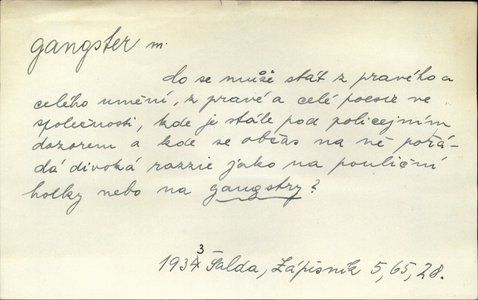 gangster m.
Co se může stát z pravého a
celého umění, z pravé a celé poesie ve
společnosti, kde je stále pod policejním
dozorem a kde se občas na ně pořá-
dá divoká razzie jako na pouliční
holky nebo na gangstry?
1933 Šalda, Zápisník 5, 65, 28.